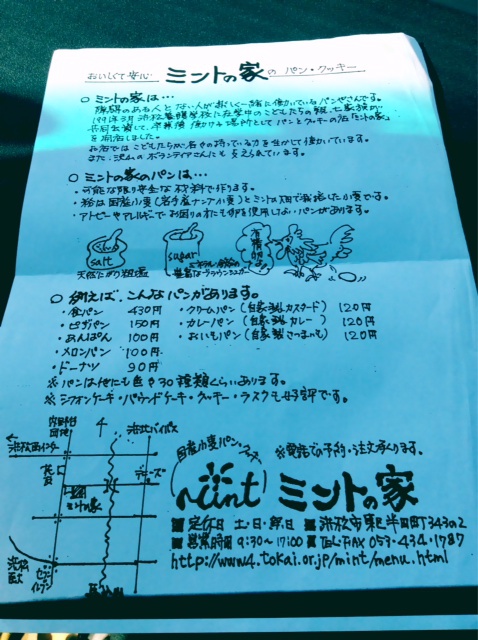 おいしくて安心 ミントの家の パン・クッキー
○ ミントの家は…
障碍のある人と ない人が 楽しく一緒に働いている パンやさんです。
1991年3月 浜松養護学校に在学中のこどもたちの親、七家族が
共同出資して、卒業後 働ける場所として パンとクッキーの店「ミントの家」
を開店しました。
お店では こどもたちが各々の持っている力を生かして働いています。
また、沢山の ボランティアさんたちも 支えられています。
○ ミントの家のパンは…
・可能な限り安全な材料で作ります。
・粉は国産小麦(岩手産ナンブ小麦)とミントの畑で栽培した小麦です。
・アトピーやアレルギーでお困りの方にも卵を使用しないパンがあります。
salt
sugar
有精卵
天然にがり粗塩
ブラウンシュガー
○ 例えば、こんなパンがあります。
・食パン 430円 ・クリームパン (自家製カスタード) 120円
・ピザパン 150円 ・カレーパン (自家製カレー) 120円
・あんぱん 100円 ・おいもパン (自家製さつまいも) 120円
・メロンパン 100円
・ドーナツ 90円
※ パンは他にも色々30種類くらいあります。
※ シフォンケーキ・パウンドケーキ・クッキー・ラスクも好評です。
※電話での予約・注文承ります。
国産小麦パン・クッキー
Mint ミントの家
■定休日 土・日・祭日 ■浜松市東区半田町343の2
■営業時間 9:30~17:00 ■TEL・FAX 053-434-1787
http://www4.tokai.or.jp/mint/menu.html
浜松西インター
内野台団地
浜北バイパス
ミントの家
セブンイレブン